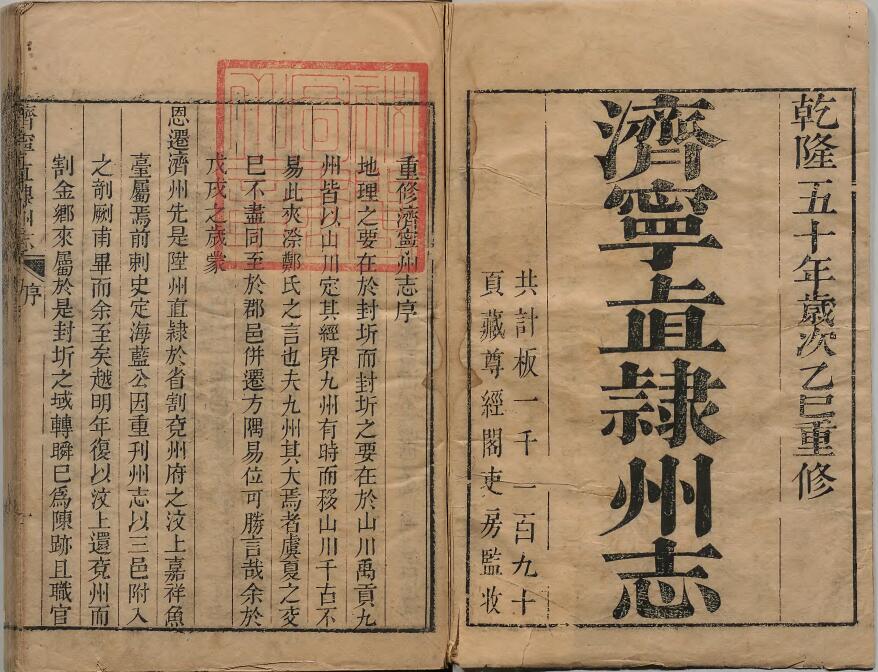 乾隆五十年歲次乙巳重修
濟寧直隸州志
共計板一千一百九十
頁藏尊經閣吏房監收
重修濟寧州志序
地理之要在於封圻而封圻之要在於山川禹貢九
州皆以山川定其經界九州有時而移山川千古不
易此夾漈鄭氏之言也夫九州其大焉者虞夏之交
巳不盡同至於郡邑併遷方隅易位可勝言哉余於
戊戌之歲蒙
恩遷濟州先是陞州直隸於省割兗州府之汶上嘉祥魚
臺屬焉前刺史定海藍公因重刊州志以三邑附入
之剞劂甫畢而余至矣越明年復以汶上還兗州而
割金鄉來屬於是封圻之域轉瞬巳爲陳跡且職官
濟寧直隸州志
序
一